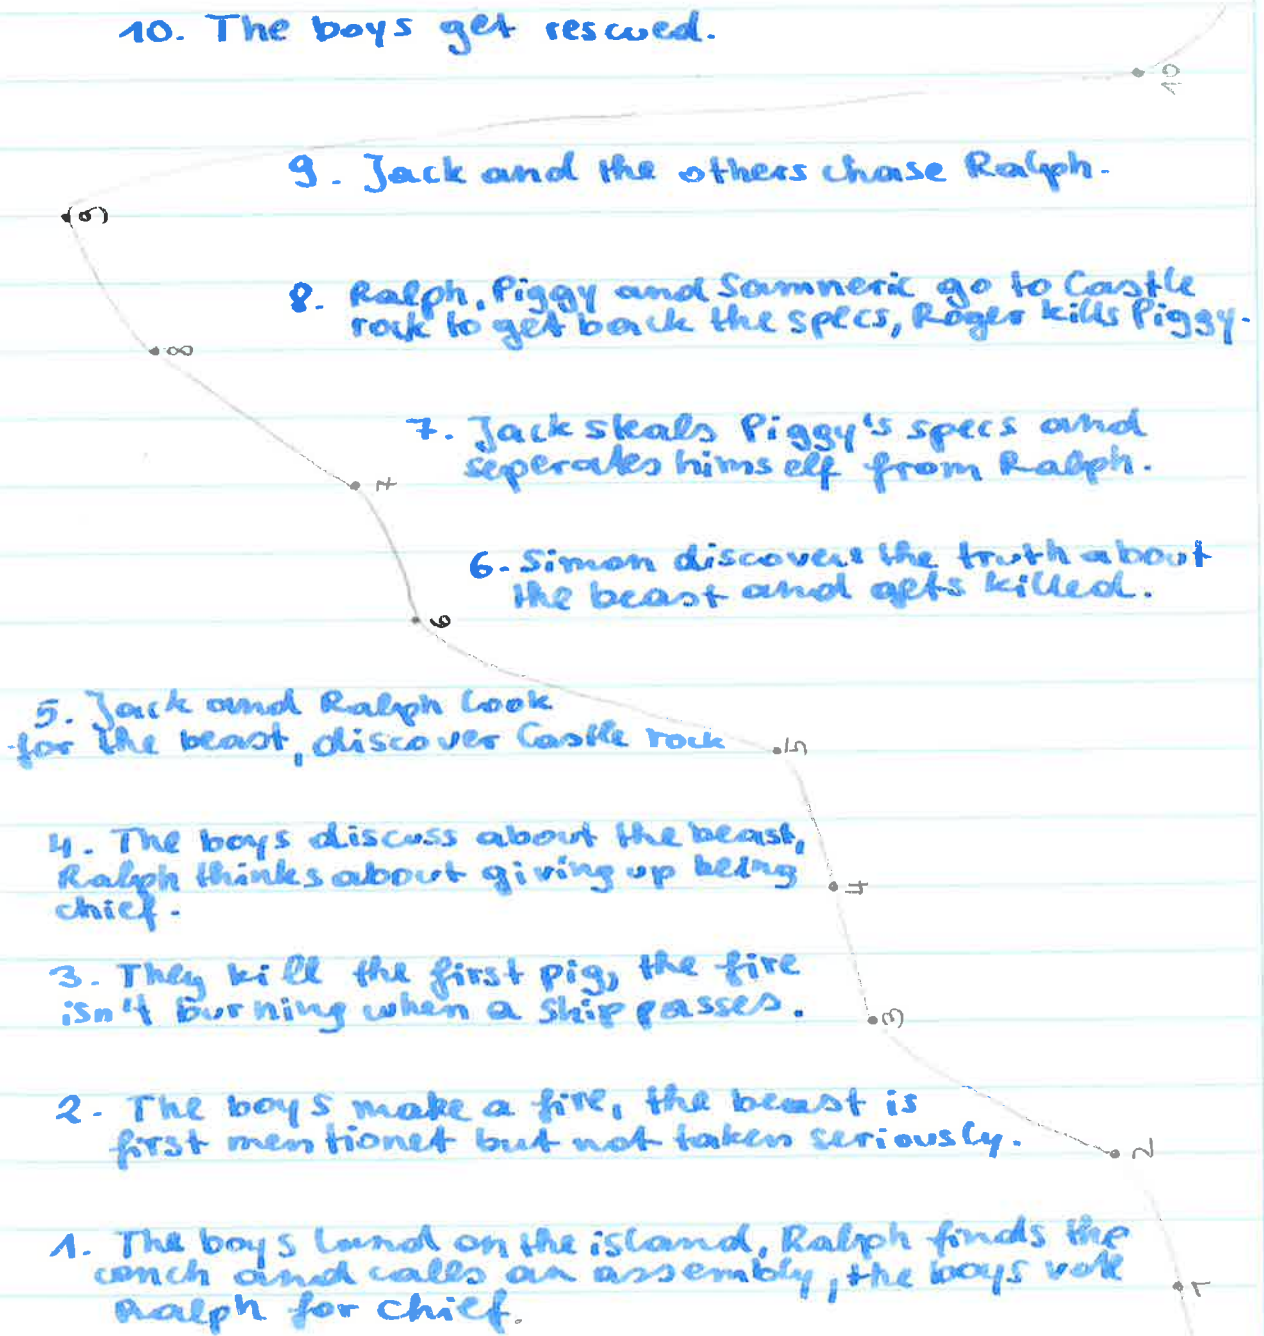 10. The boys get rescued.
10
9. Jack and the others chase Ralph.
(9)
8. Ralph, Piggy and Samneric go to Castle
rock to get back the specs, Roger kills Piggy.
8
7. Jack steals Piggy's specs and
seperates himself from Ralph.
7
6. Simon discovers the truth about
the beast and gets killed.
6
5. Jack and Ralph look
for the beast, discover Castle rock
5
4. The boys discuss about the beast,
Ralph thinks about giving up being
chief.
4
3. They kill the first pig, the fire
isn't burning when a ship passes.
3
2. The boys make a fire, the beast is
first mentionet but not taken seriously.
2
1. The boys land on the island, Ralph finds the
conch and calls an assembly, the boys vote
Ralph for chief.
1